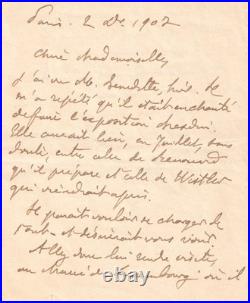 Paris. 2 Dc. 1902
Chère Mademoiselle,
J'ai vu M. Benedite, hier. Il
m'a répété qu'il était enchanté
de faire l'exposition
Elle aurait lieu, en Juillet, sans
doute, entre celle de Renouard
qu'il prépare et celle de Wistler
qui viendrait après.
Il paraît vouloir se charger de
tout et désirerait vous voir.
Allez donc lui rendre visite,
au Musée du Luxembourg où il